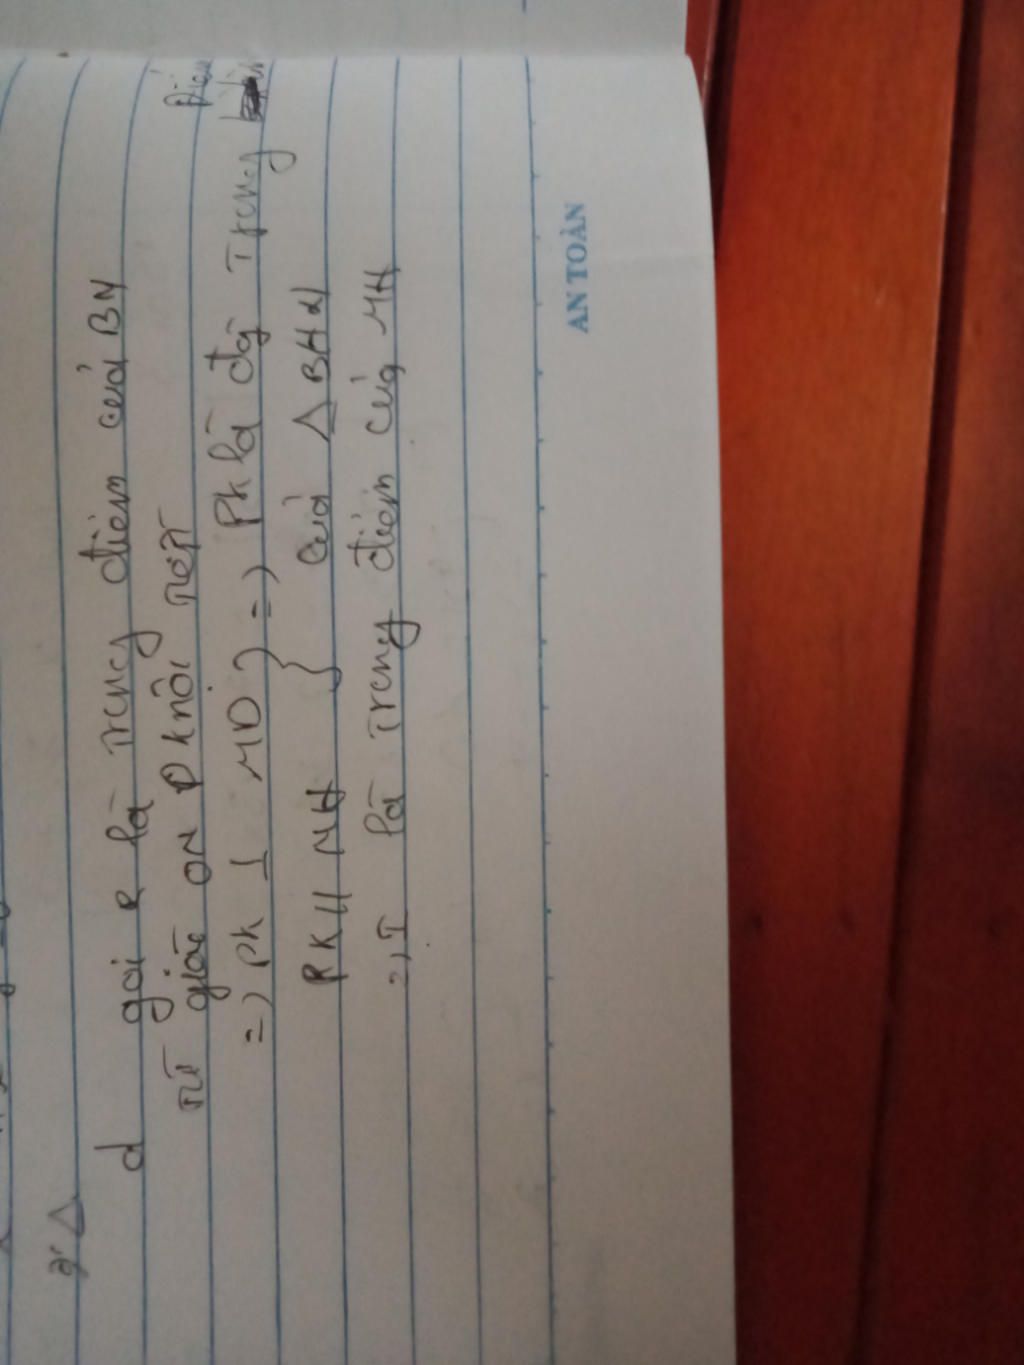 d gọi P là trung điểm của BN
tứ giác ON PK nội tiếp
=) PK ⊥ MD
=) PK là đg trung
PK // NH
của △ BHN
=) I là trung điểm của MH
AN TOÀN